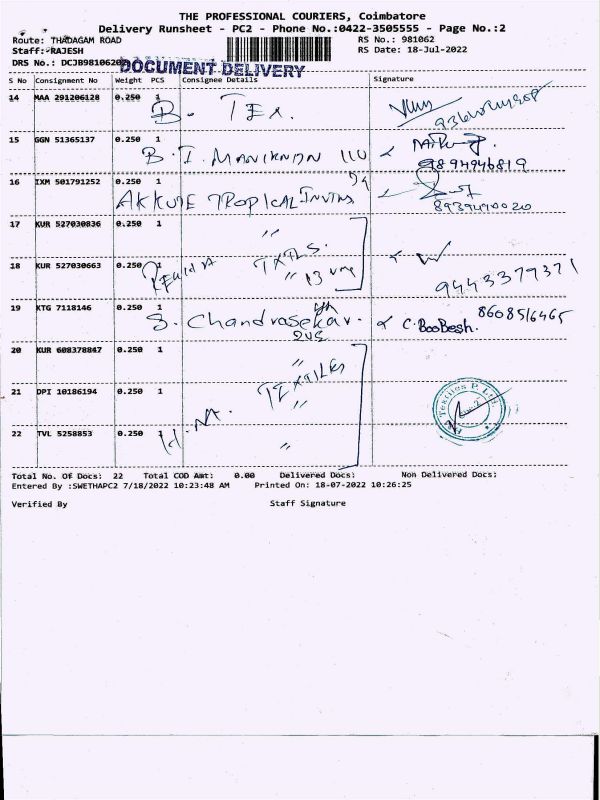 THE PROFESSIONAL COURIERS, Coimbatore
Delivery Runsheet - PC2 - Phone No.:0422-3505555 - Page No.:2
Route: THADAGAM ROAD RS No.: 981062
Staff:-RAJESH RS Date: 18-Jul-2022
DRS No.: DCJB981062
DOCUMENT DELIVERY
S No Consignment No Weight PCS Consignee Details Signature
14 MAA 291206128 0.250 1 B. TEX.
15 GGN 51365137 0.250 1 B. I. MANIKNDN
9894946819
16 IXM 501791252 0.250 1 AKKUTE TROPICAL
8939490020
17 KUR 527030836 0.250 1 "
18 KUR 527030663 0.250 1 TXTLS. "
9443379371
19 KTG 7118146 0.250 1 S. Chandrasekar. C. BooBesh. 8608516465
20 KUR 608378847 0.250 1 "
21 DPI 10186194 0.250 1 "
22 TVL 5258853 0.250 "
Textiles P. Ltd
Total No. Of Docs: 22 Total COD Amt: 0.00 Delivered Docs: Non Delivered Docs:
Entered By :SWETHAPC2 7/18/2022 10:23:48 AM Printed On: 18-07-2022 10:26:25
Verified By Staff Signature